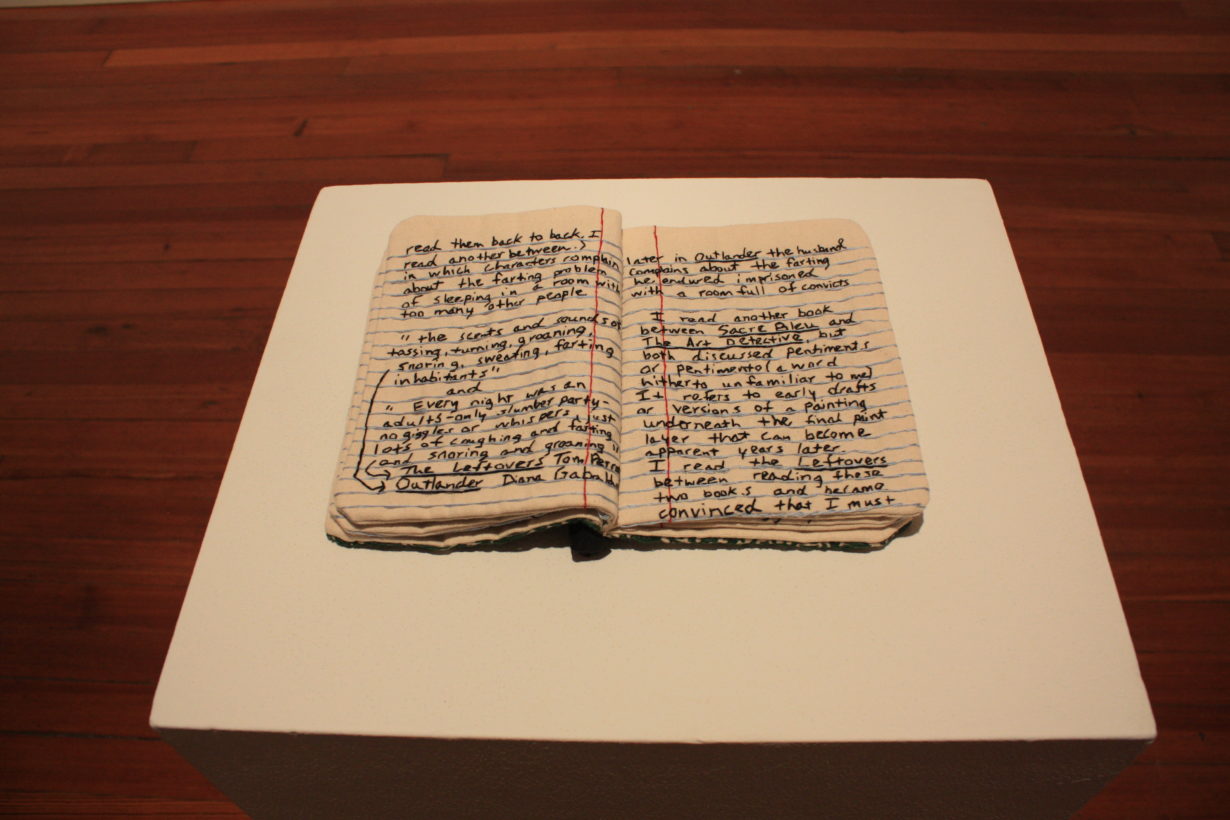 read them back to back. I
read another between.)
in which characters complain
about the farting problem
of sleeping in a room with
too many other people
"the scents and sounds of
tossing, turning, groaning,
snoring, sweating, farting
inhabitants"
and
"Every night was an
adults-only slumber party-
no giggles or whispers, just
lots of coughing and farting
and snoring and groaning"
The Leftovers Tom
Outlander Diana
later in Outlander the husband
complains about the farting
he endured imprisoned
with a room full of convicts
I read another book
between Sacre Bleu and
The Art Detective, but
both discussed pentiments
or pentimento (a word
hitherto unfamiliar to me)
It refers to early drafts
or versions of a painting
underneath the final paint
layer that can become
apparent years later.
I read the Leftovers
between reading these
two books and became
convinced that I must